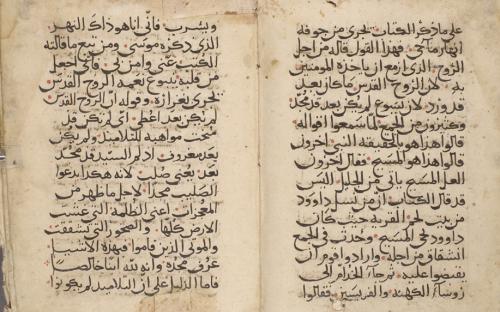 على ما ذكر الكتاب تجري من جوفه
انهار ما حي فهذا القول قاله من اجل
الروح الذي ازمع ان ياخذه المومنين
به لان الروح القدس ما كان بعد
قد ورد لان يسوع لم يكن بعد قد مجد
وكثيرون من الجمع لما سمعوا اقواله
قالوا هذا هو بالحقيقه النبي اخرون
قالوا هذا هو المسيح فقال اخرون
العل المسيح ياتي من الجليل اليس
قد قال الكتاب ان من نسل داوود
من بيت لحم القريه حيث كان
داوود يجي المسيح وحدث في الجمع
انشقاق من اجله وارادوا قوم ان
يقبضوا عليه الخدام الى
روسا الكهنه والفريسيين فقالوا
ويشرب فاني انا هو ذاك النهر
الذي ذكره موسى ومن تبع ما قالته
الكتب عني وامن بي فاني اجعل
من قلبه ينبوع نعمه الروح القدس
تجري بغزاره وقوله ان الروح القدس
لم يكن بعد اعطي اي لم يكن قد
منحت مواهبه للتلاميذ ولم يكن
بعد معروف اذ لم السيد قد مجد
بعد يعني صلب لانه هكذا يدعوا
الصليب مجدا لاجل ما ظهر من
المعجزات اعني الظلمه التي غشت
الارض كلها والصخور التي تشققت
والموتى الذين قاموا فبهذه الاشيا
عرف مجده وانه لله ابنا خالصا
فاما الدليل على ان التلاميذ لم يكونوا